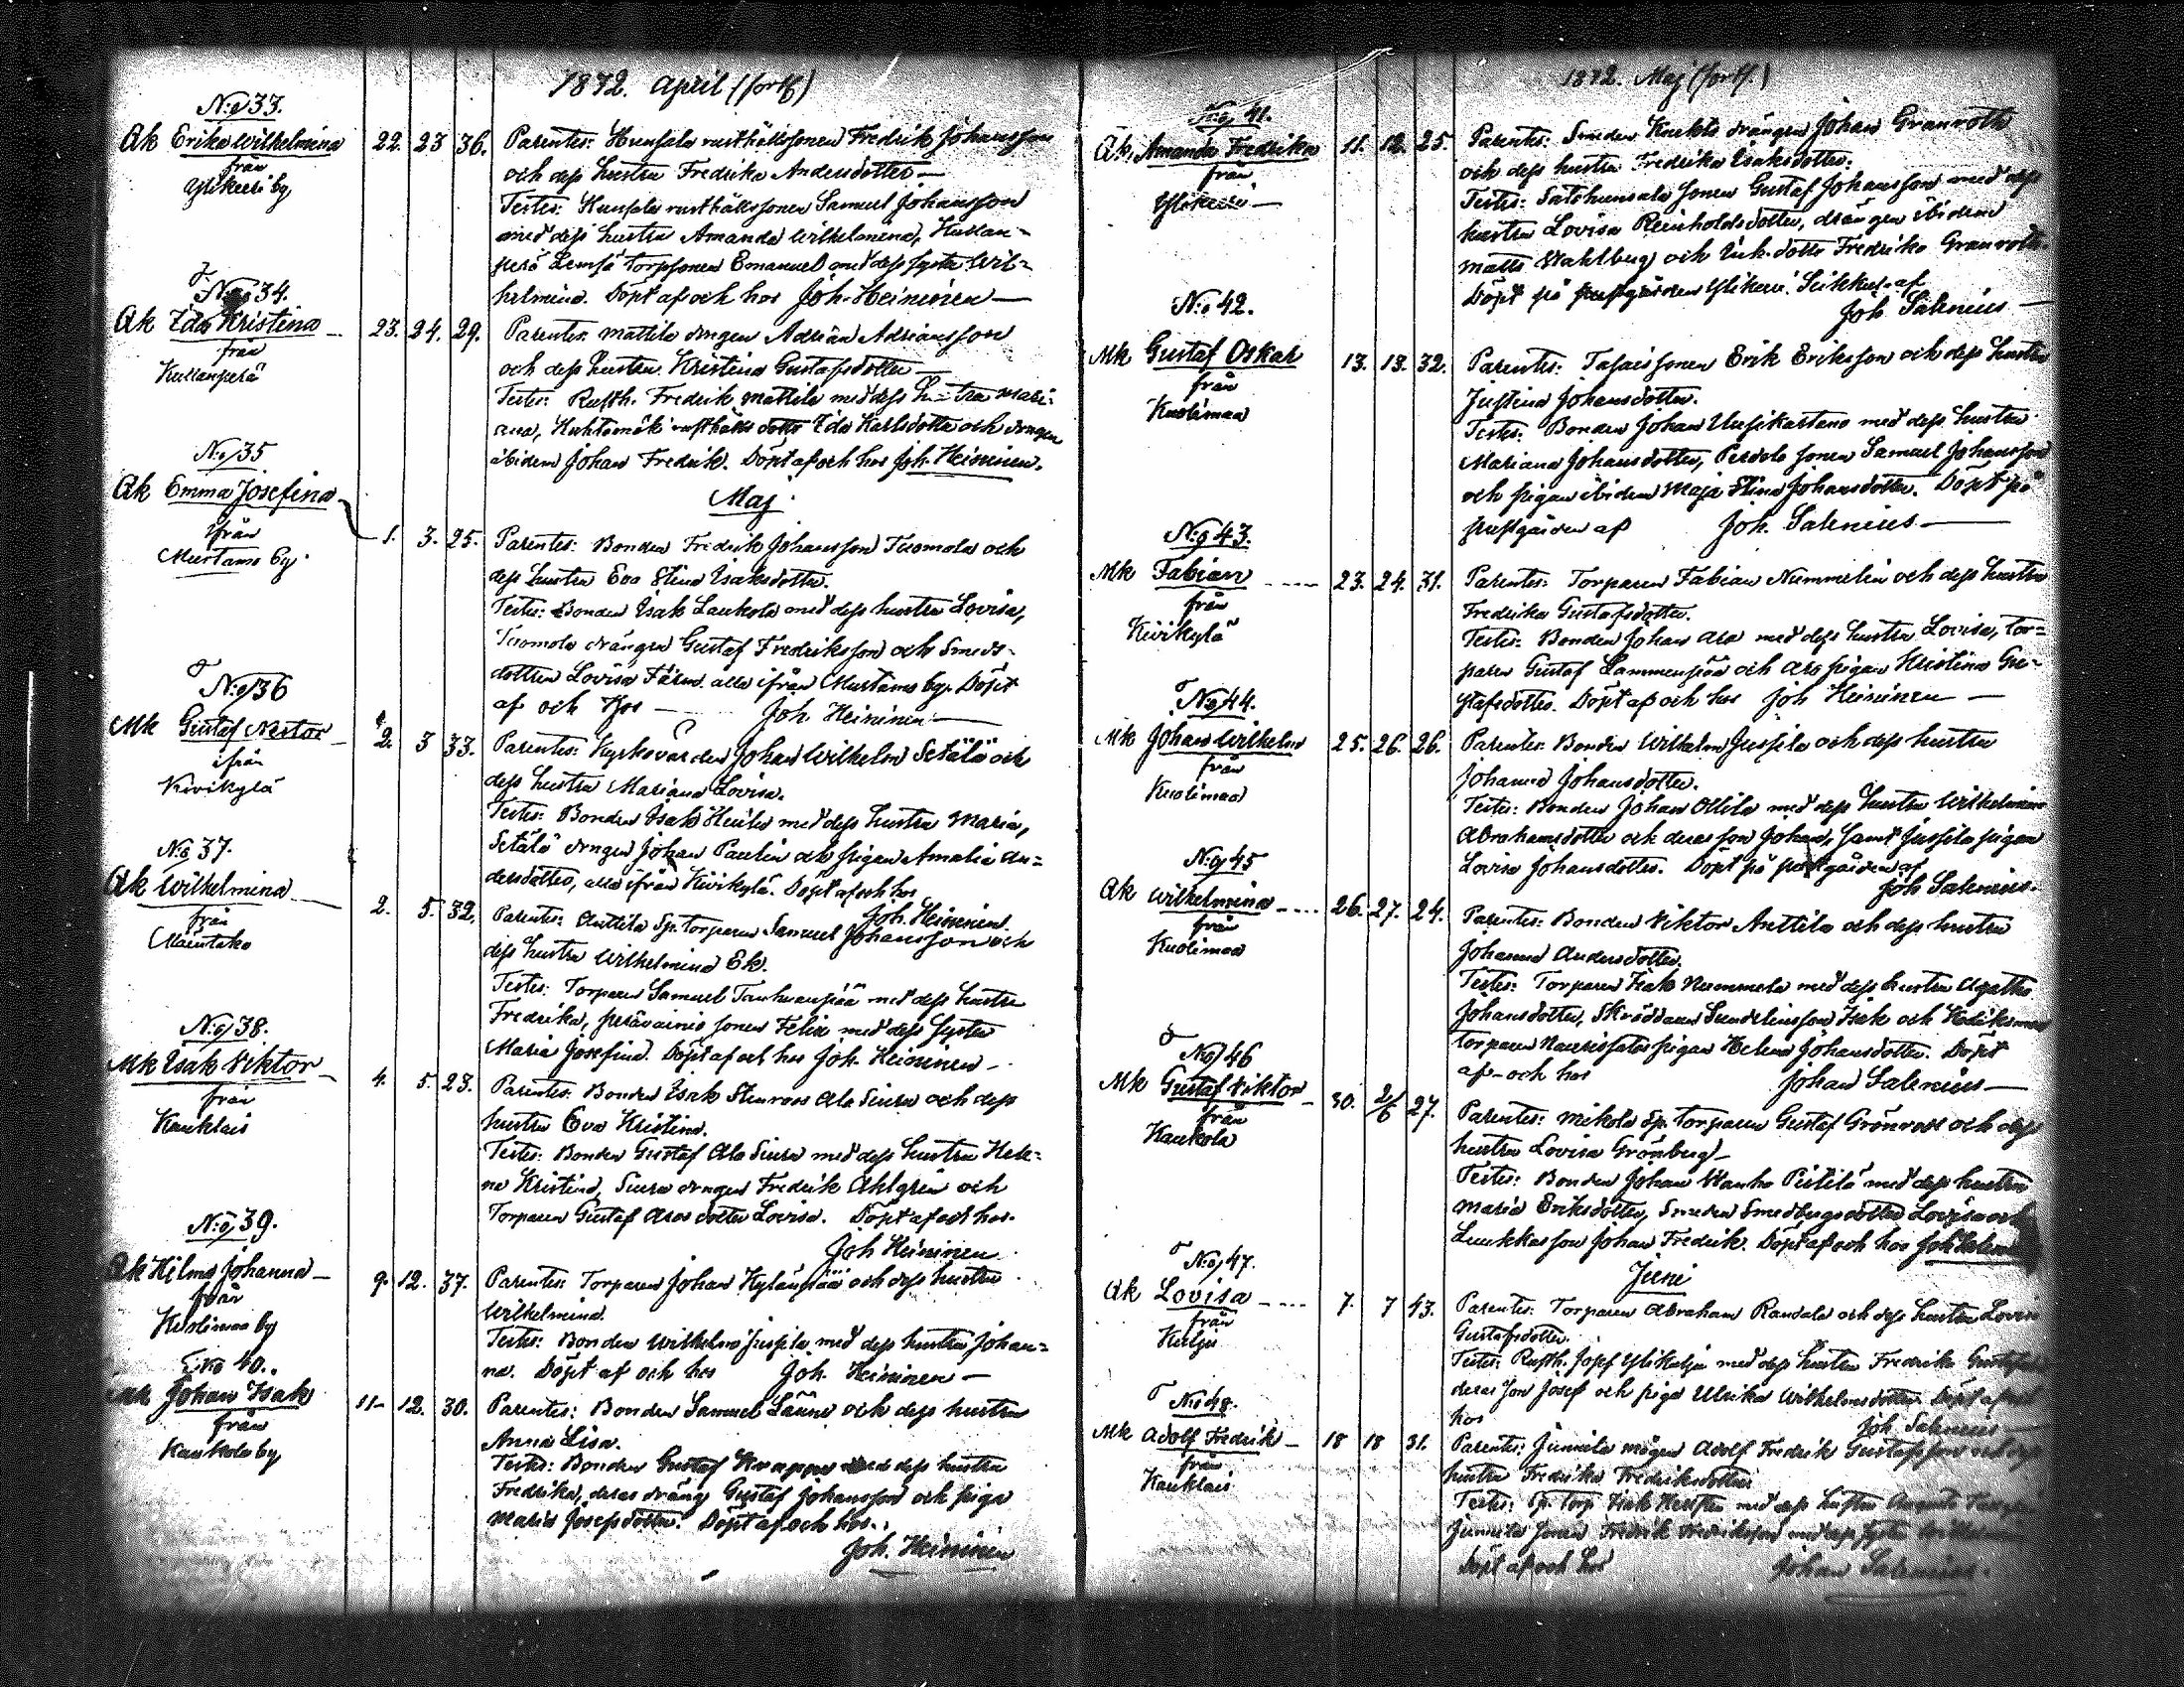 1872. April (forts)
N:o 33.
Äk Erika Wilhelmina 22. 23 36. Parentes: Hunsala rusthållssonen Fredrik Johansson
från och dess hustru Fredrika Andersdotter —
Ylikeeri by Testes: Hunsala rusthållssonen Samuel Johansson
med dess hustru Amanda Wilhelmina, Kullan-
perä torpsonen Emanuel med dess syster Wil-
helmina. Döpt af och hos Joh. Heininen —
N:o 34.
Äk Ida Kristina 23. 24. 29. Parentes: Mattila drngen Adrian Adriansson
från och dess hustru Kristina Gustafsdotter —
Kullanperä Testes: Rusth. Fredrik Mattila med dess hustru Mari-
ana, rusthålls dottr Ida Karlsdotter och drngen
ibidem Johan Fredrik. Döpt af och hos Joh. Heininen.
Maj
N:o 35
Äk Emma Josefina 1. 3. 25. Parentes: Bonden Fredrik Johansson Tuomola och
ifrån dess hustru Eva Stina Isaksdotter.
Murtamo by. Testes: Bonden Isak Laukola med dess hustru Lovisa,
Tuomola drängen Gustaf Fredriksson och Smeds-
dottren Lovisa Färm alla ifrån Murtamo by. Döpt
af och hos — Joh Heininen —
N:o 36
Mk Gustaf Nestor 2. 3 33. Parentes: Kyrkovärden Johan Wilhelm Setälä och
ifrån dess hustru Mariana Lovisa.
Kivikylä Testes: Bonden Isak Heikola med dess hustru Maria,
Setälä drngen Johan Paulin och pigan Amalia An-
dersdotter, alla ifrån Kivikylä. Döpt af och hos
Joh. Heininen
N:o 37.
Äk Wilhelmina 2. 5. 32. Parentes: Anttila Sp. torparen Samuel Johansson och
från dess hustru Wilhelmina Ek.
Mäentaka Testes: Torparen Samuel Tanhuanpää med dess hustru
Fredrika, Perävainio sonen Felix med dess syster
Maria Josefina. Döpt af och hos Joh. Heininen —
N:o 38.
Mk Isak Viktor 4. 5. 23. Parentes: Bonden Isak Stenroos Ala Siura och dess
från hustru Eva Kristina.
Kauklais Testes: Bonden Gustaf Ala Siura med dess hustru Hele-
na Kristina, Siura drngen Fredrik Ahlgrén och
Torparen Gustaf Aros dotter Lovisa. Döpt af och hos.
Joh Heininen
N:o 39.
Äk Hilma Johanna 9. 12. 37. Parentes: Torparen Johan Kylänpää och dess hustru
från Wilhelmina.
Kuolimaa by Testes: Bonden Wilhelm Jussila med dess hustru Johan-
na. Döpt af och hos Joh. Heininen —
N:o 40.
Johan Isak 11 12. 30. Parentes: Bonden Samuel Länne och dess hustru
från Anna Lisa.
Kaukola by Testes: Bonden Gustaf med dess hustru
Fredrika, deras dräng Gustaf Johansson och piga
Maria Josefsdotter. Döpt af och hos.
Joh. Heininen
1872. Maj (forts.)
N:o 41.
Äk, Amanda Fredrika 11. 12. 25. Parentes: Smeden drängen Johan Granroth
från och dess hustru Fredrika Isaksdotter.
Ylikeeri — Testes: sonen Gustaf Johansson med dess
hustru Lovisa Reinholdsdotter, drängen ibidem
Matts Wahlberg och dottr Fredrika Granroth.
Döpt på prestgården af
Joh. Salenius —
N:o 42.
Mk Gustaf Oskar 13. 13. 32. Parentes: sonen Erik Eriksson och dess hustru
från Justina Johansdotter.
Kuolimaa Testes: Bonden Johan Uusikartano med dess hustru
Mariana Johansdotter, Perdola sonen Samuel Johansson
och pigan ibidem Maja Stina Johansdotter. Döpt på
prestgården af Joh. Salenius —
N:o 43.
Mk Fabian 23. 24. 31. Parentes: Torparen Fabian Nummelin och dess hustru
från Fredrika Gustafsdotter.
Kivikylä Testes: Bonden Johan Aro med dess hustru Lovisa, Tor-
paren Gustaf Lammenpää och Aro pigan Kristina Gu-
stafsdotter. Döpt af och hos Joh Heininen —
N:o 44.
Mk Johan Wilhelm 25. 26. 26. Parentes: Bonden Wilhelm Jussila och dess hustru
från Johanna Johansdotter.
Kuolimaa Testes: Bonden Johan Ollila med dess hustru Wilhelmina
Abrahamsdotter och deras son Johan, samt Jussila pigan
Lovisa Johansdotter. Döpt på prestgården af
Joh Salenius.
N:o 45
Äk Wilhelmina 26. 27. 24. Parentes: Bonden Viktor Anttila och dess hustru
från Johanna Andersdotter.
Kuolimaa Testes: Torparen Isak Nummela med dess hustru Agatha
Johansdotter, Skräddaren Sundelins son Isak och
torparen pigan Helena Johansdotter. Döpt
af och hos Johan Salenius —
N:o 46
Mk Gustaf Viktor 30. 2/6 27. Parentes: Mikola Sp. Torparen Gustaf Grönroos och dess
från hustru Lovisa Grönberg —
Kaukola Testes: Bonden Johan Wanha Pietilä med dess hustru
Maria Eriksdotter, Smeden Smedbergs dotter Lovisa och
Luukkas son Johan Fredrik. Döpt af och hos Joh Salenius
Juni
N:o 47.
Äk Lovisa 7. 7 43. Parentes: Torparen Abraham Randala och dess hustru Lovisa
från Gustafsdotter.
Kulju Testes: Rusth. Josef Ylikulju med dess hustru Fredrika
deras son Josef och piga Ulrika Wilhelmsdotter. Döpt af och
hos Joh Salenius
N:o 48.
Mk Adolf Fredrik 18 18 31. Parentes: Junnila mågen Adolf Fredrik Gustafsson och dess
från hustru Fredrika Fredriksdotter
Kauklais Testes: Sp. Torp. Isak med dess hustru Augusta
Junnila sonen Fredrik Fredriksson med dess syster
Döpt af och hos Johan Salenius.